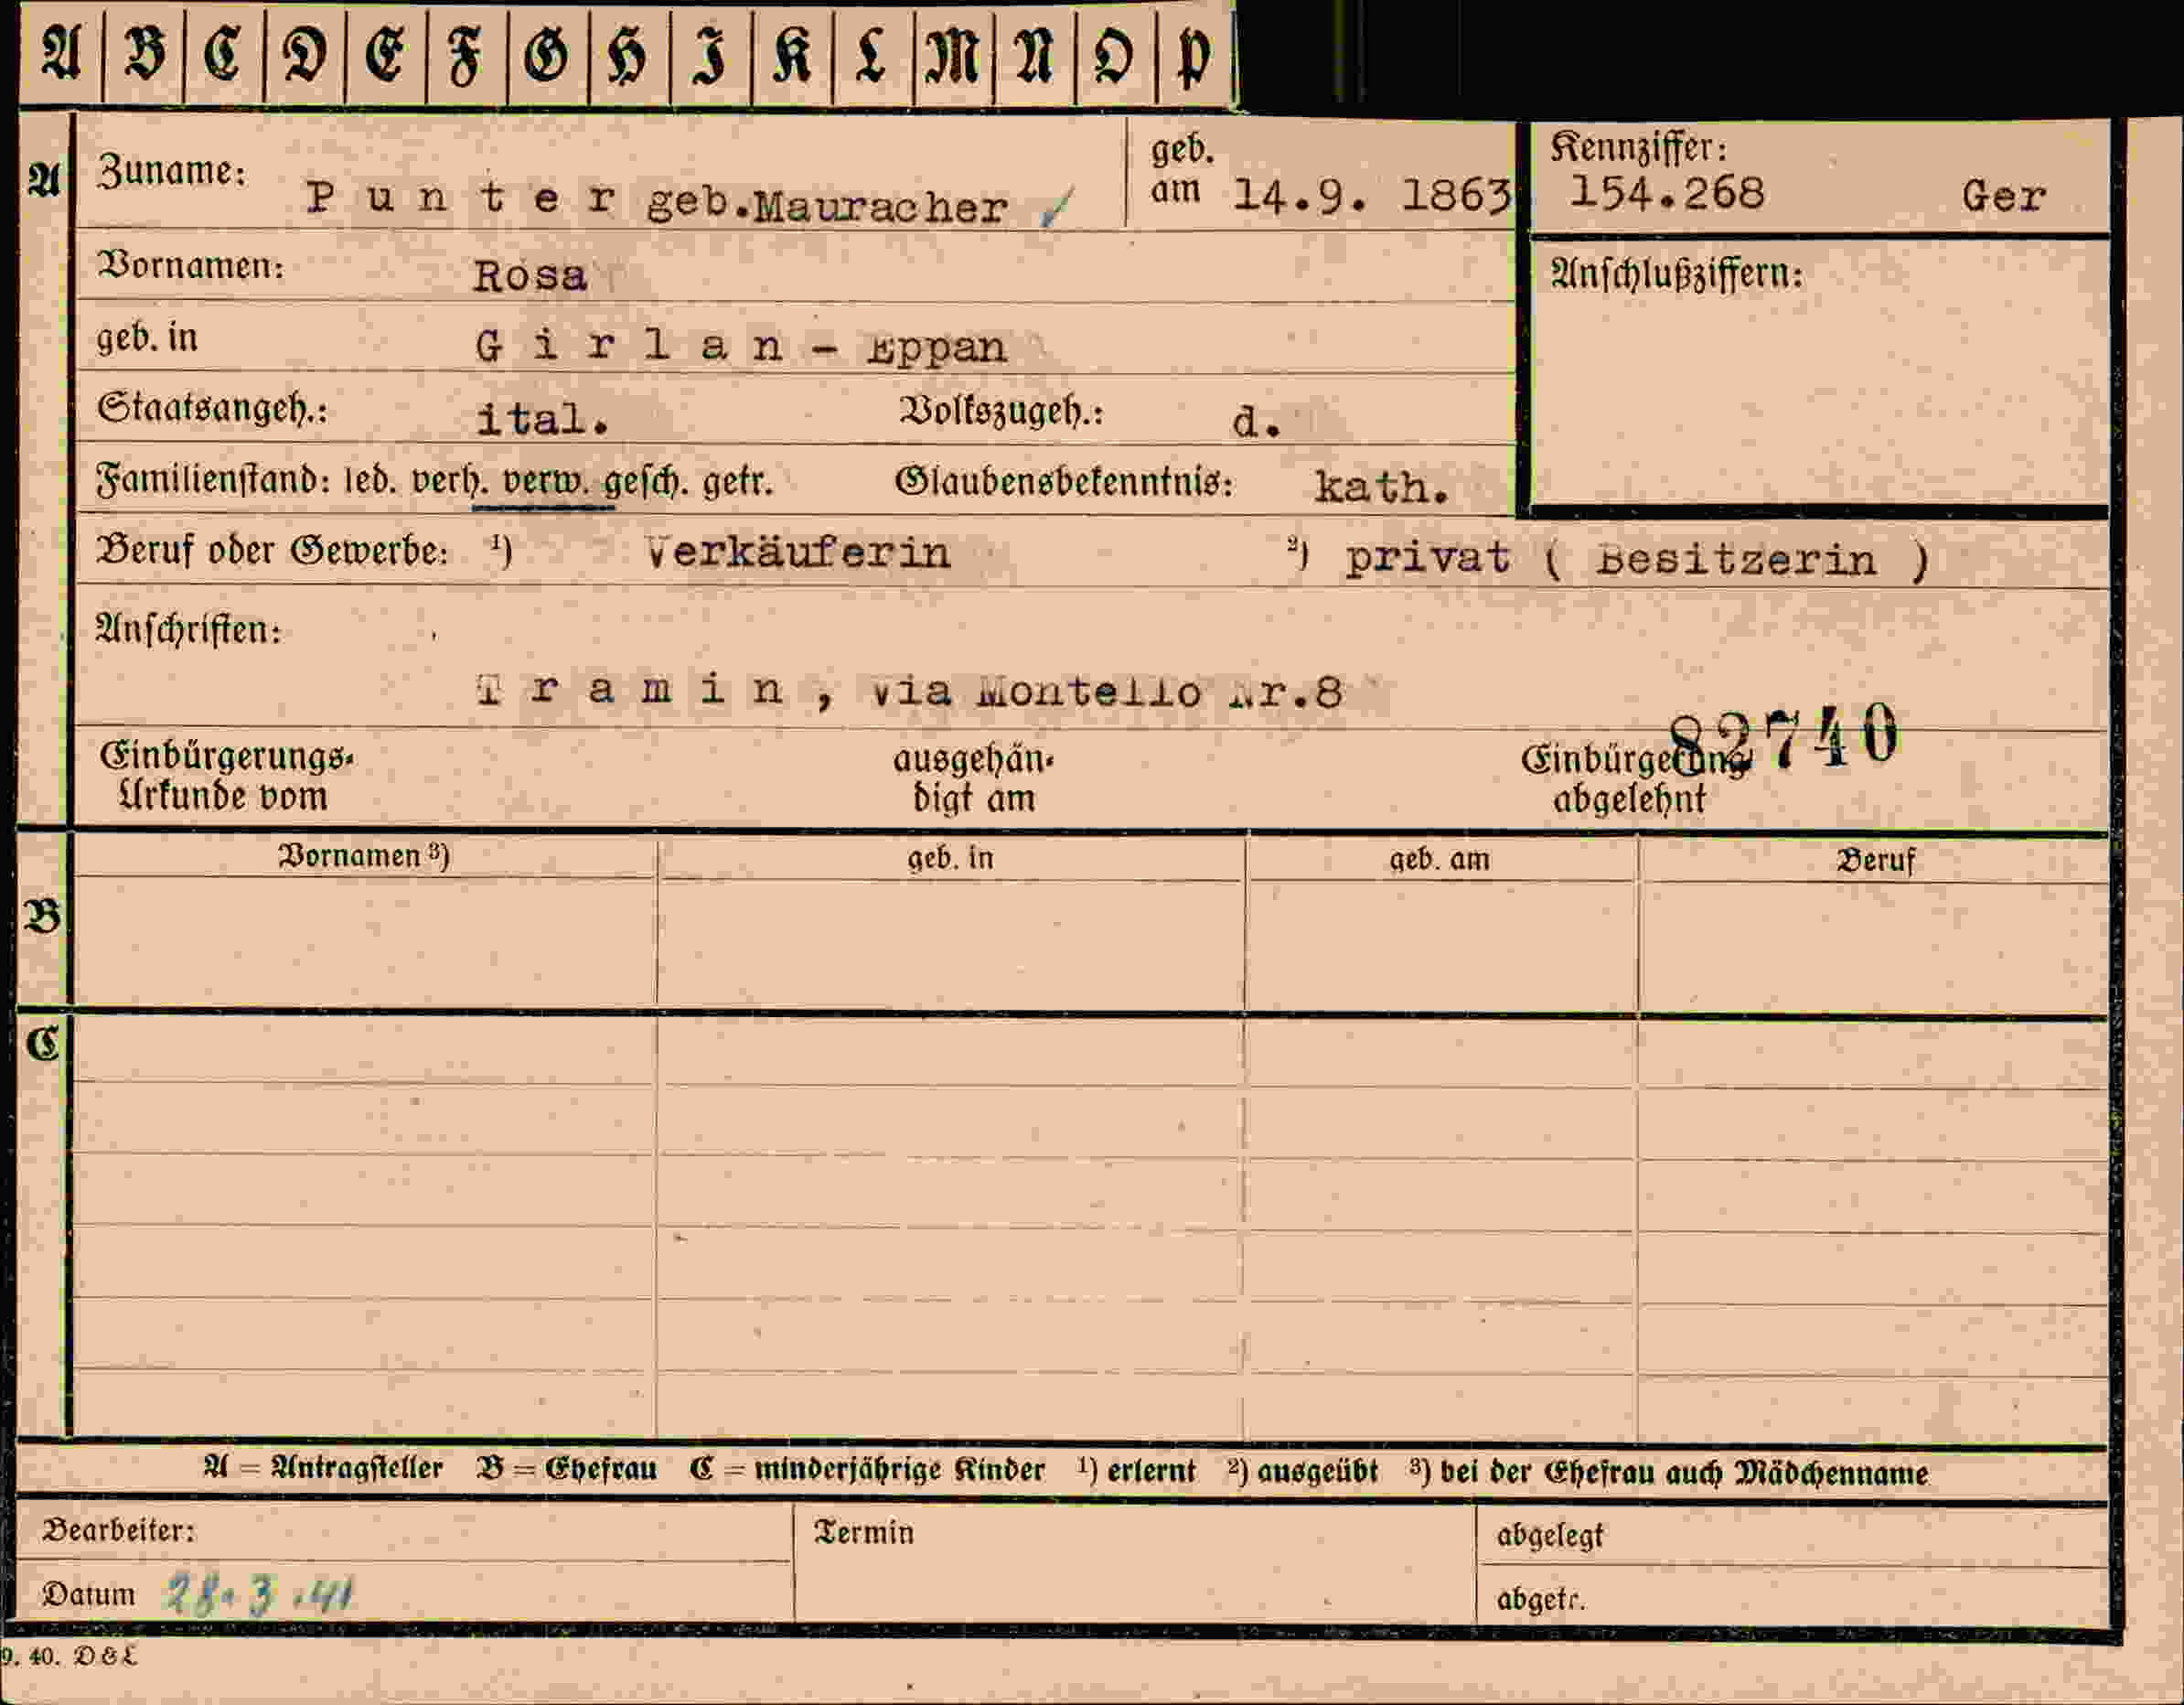 A B C D E F G H I K L M N O P
A Zuname: Punter geb.Mauracher geb. am 14.9. 1863 Kennziffer: 154.268 Ger
Vornamen: Rosa Anschlußziffern:
geb. in Girlan - Eppan
Staatsangeh.: ital. Volkszugeh.: d.
Familienstand: led. verh. verw. gesch. getr. Glaubensbekenntnis: kath.
Beruf oder Gewerbe: ¹) Verkäuferin ²) privat ( Besitzerin )
Anschriften:
Tramin, via Montello Nr.8
82740
Einbürgerungs- ausgehän- Einbürgerung
Urkunde vom digt am abgelehnt
Vornamen ³) geb. in geb. am Beruf
B
C
A = Antragsteller B = Ehefrau C = minderjährige Kinder ¹) erlernt ²) ausgeübt ³) bei der Ehefrau auch Mädchenname
Bearbeiter: Termin abgelegt
Datum 28.3.41 abgetr.
9. 40. D&L